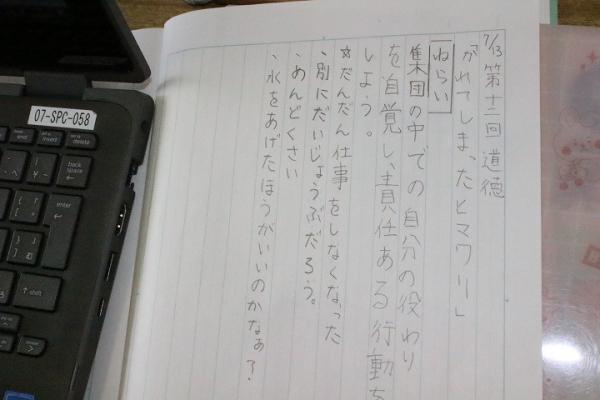 7/13 第十二回 道徳
「かれてしまったヒマワリ」
ねらい
集団の中での自分の役わり
を自覚し、責任ある行動を
しよう。
☆だんだん仕事をしなくなった
・別にだいじょうぶだろう。
・めんどくさい
・水をあげたほうがいいのかなぁ？
07-SPC-058
back space
enter
shift
insert
delete